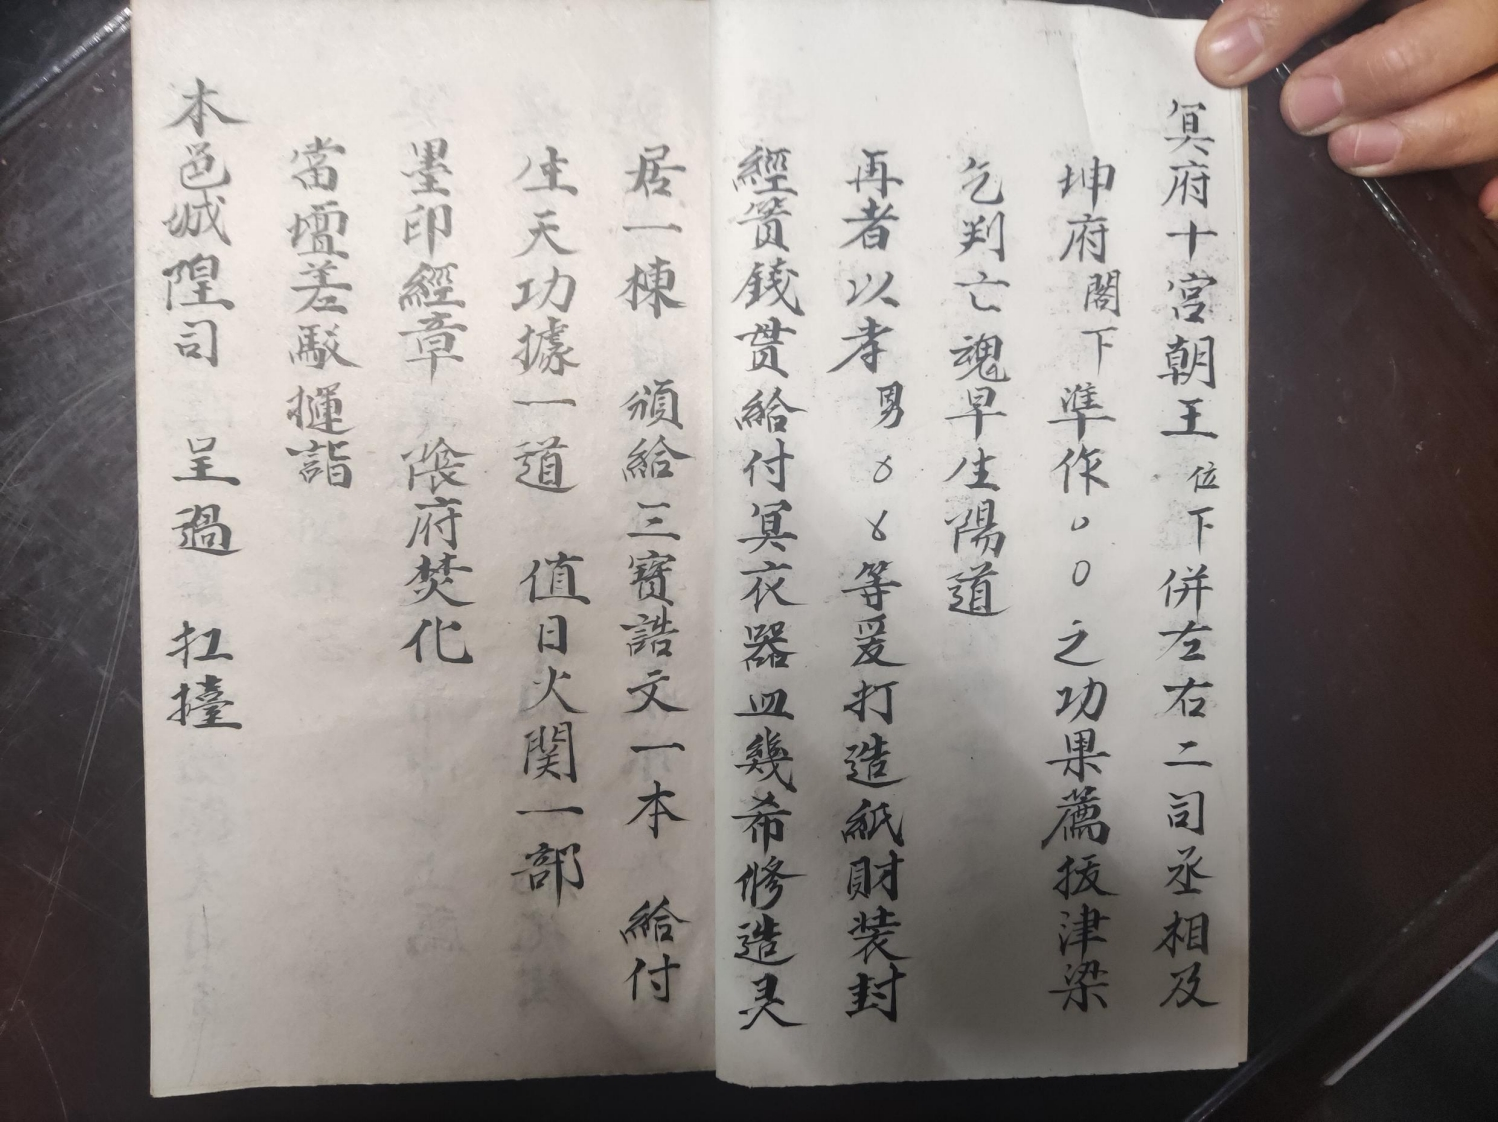 冥府十宮朝王位下併左右二司丞相及
坤府閣下準作〇〇之功果薦拔津梁
乞判亡魂早生陽道
再者以孝男〇〇等爰打造紙財裝封
經篢錢貫給付冥衣器皿幾希修造灵
居一棟 頒給三寶誥文一本 給付
生天功據一道 值日火関一部
墨印經章 陰府焚化
當壇差馭 詣
本邑城隍司 呈過 扛擡